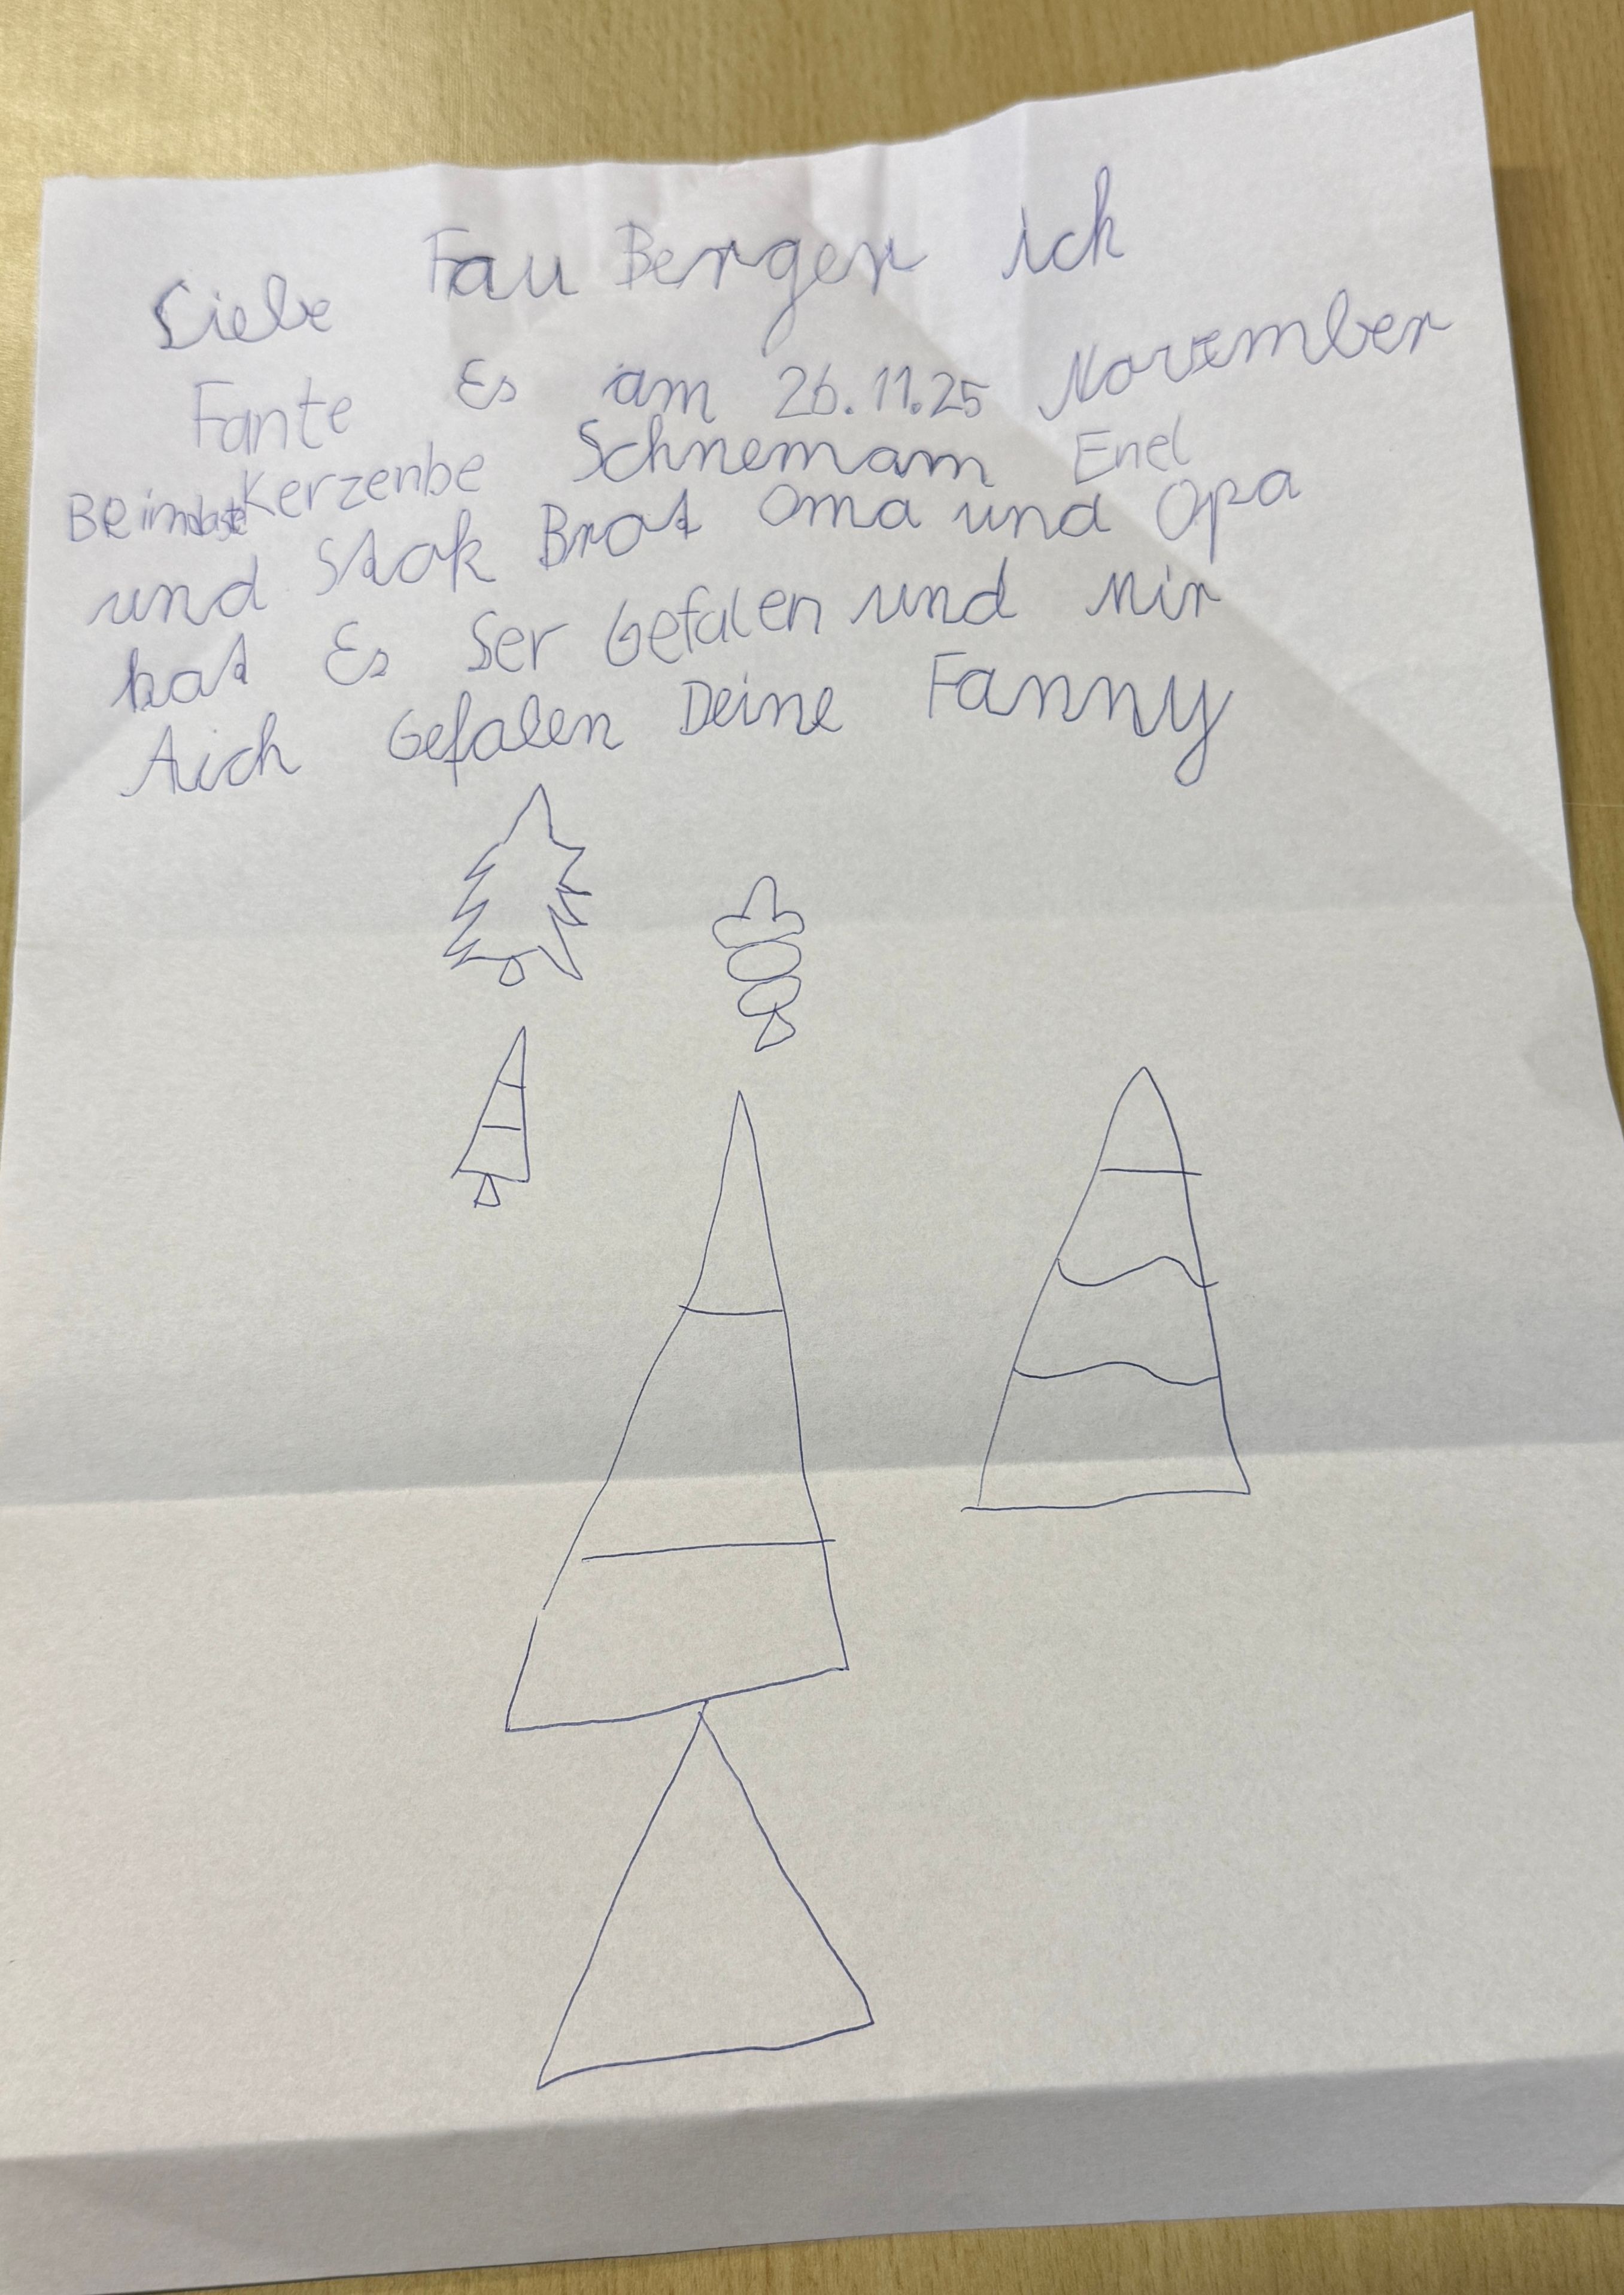 Liebe Fau Berger ich
Fante Es am 26.11.25 November
Beim Kerzenbe Schnemam Enel
und Stok Brot Oma und Opa
hat Es Ser Gefalen und Mir
Auch Gefalen Deine Fanny